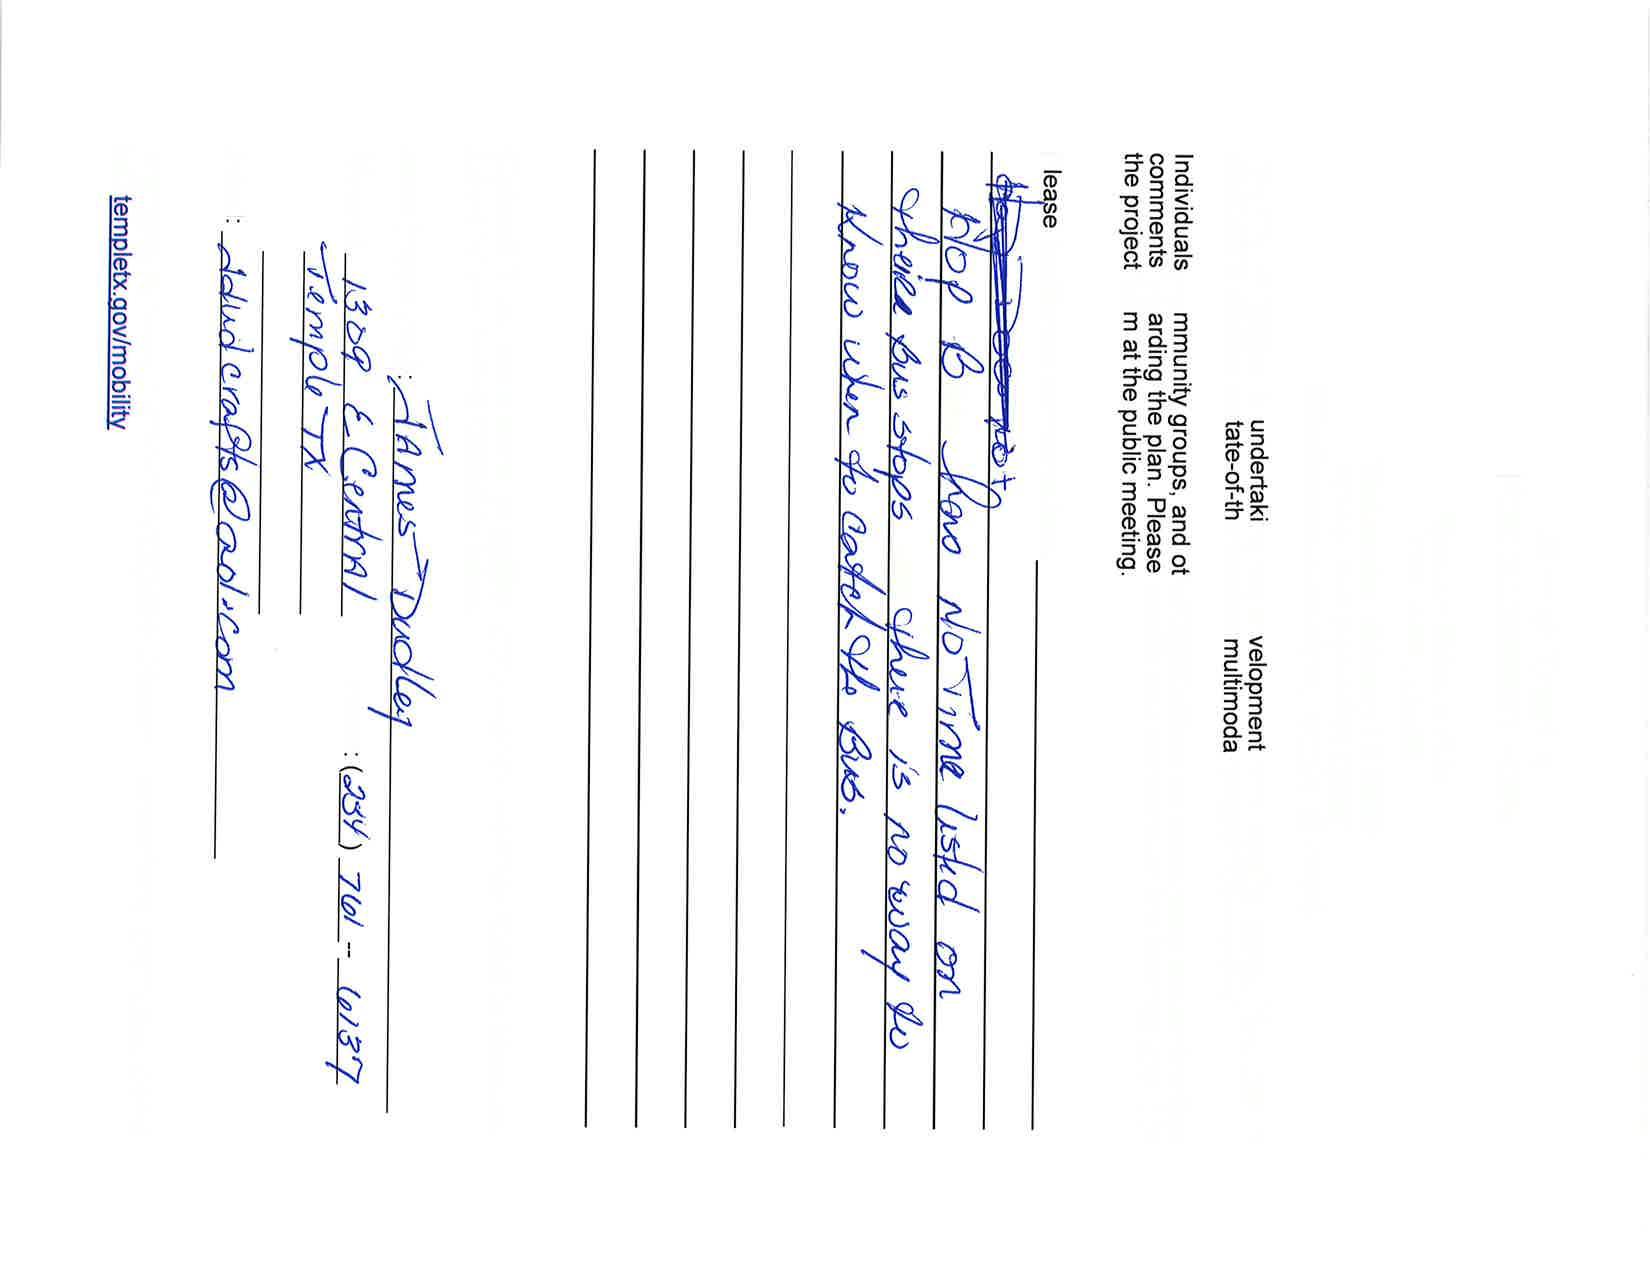 undertaki velopment
tate-of-th multimoda
Individuals mmunity groups, and ot
comments arding the plan. Please
the project m at the public meeting.
lease
Hop B have NO Time listed on
their bus stops there is no way to
Know when to catch the Bus.
: James Dudley
1309 E Central : (254) 761 -- 6137
Temple TX
templetx.gov/mobility